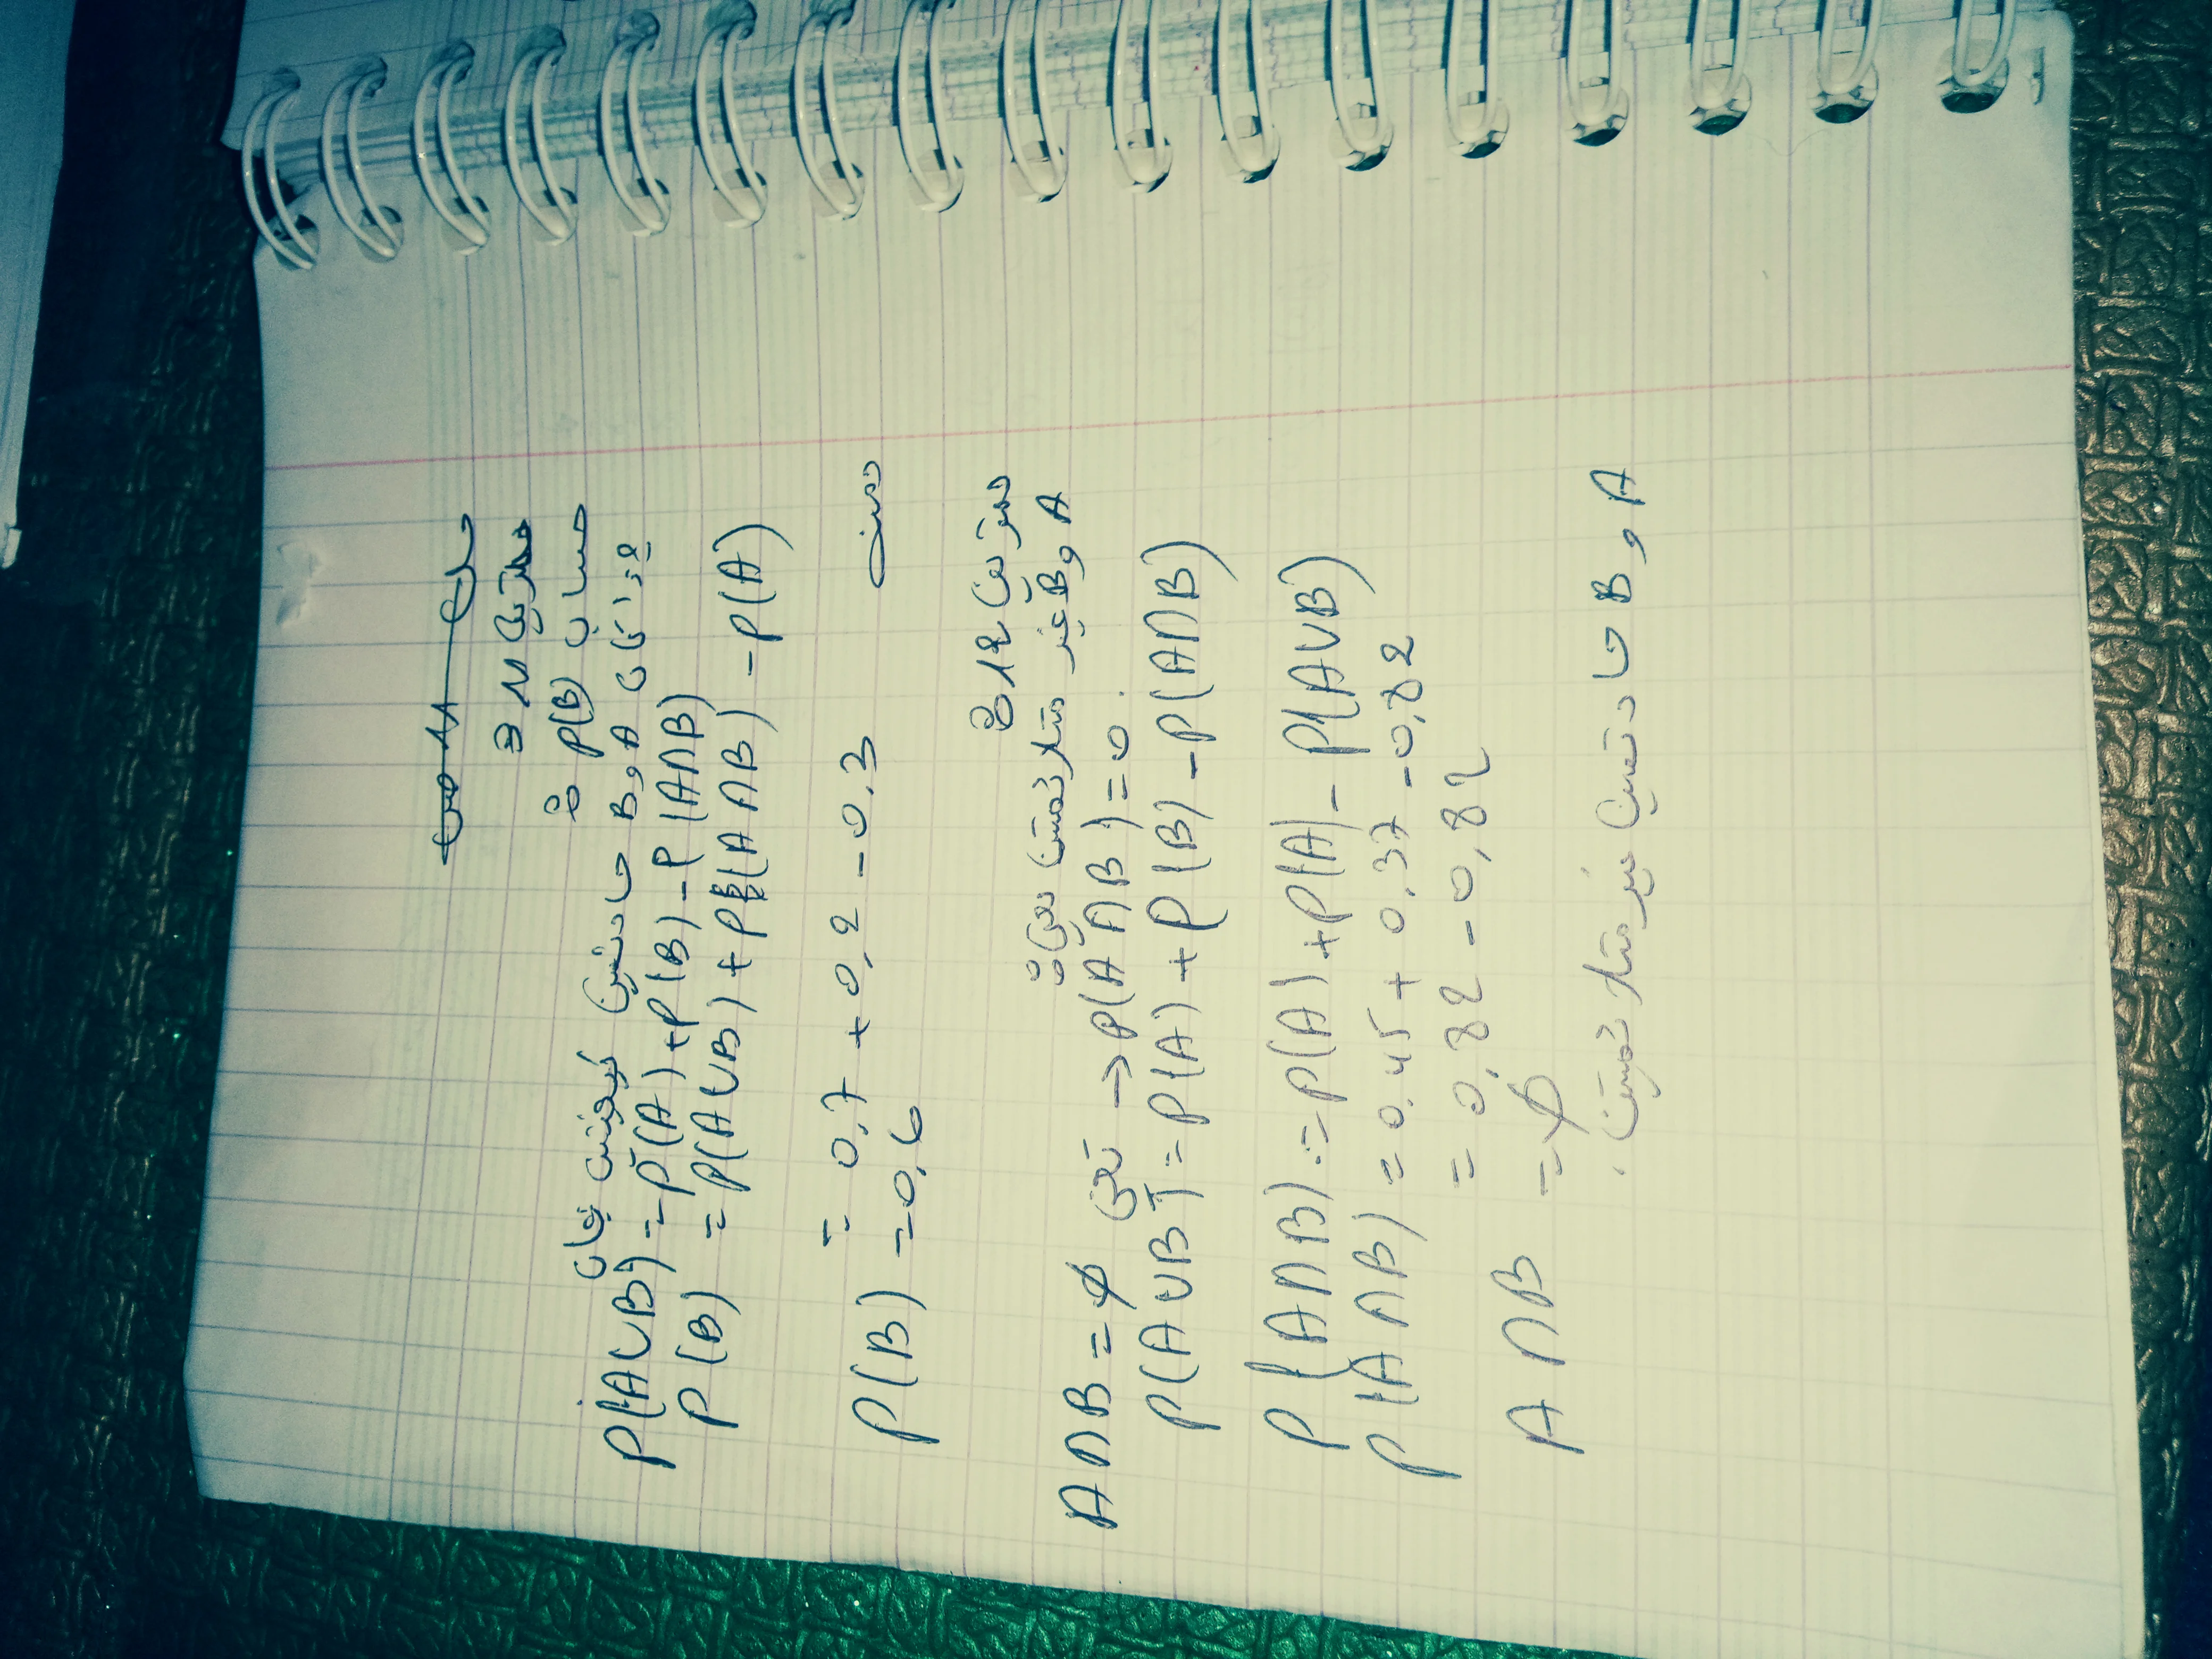 حل
تمرين 11 ص
حساب P(B) :
إذا كان A و B حادثتين كيفيتين فإن
P(A∪B) = P(A) + P(B) - P(A∩B)
P(B) = P(A∪B) + P(A∩B) - P(A)
= 0,7 + 0,2 - 0,3
P(B) = 0,6
تمرين 12 :
A و B غير متلائمتين يعني :
A∩B = ∅ تعني → P(A∩B) = 0
P(A∪B) = P(A) + P(B) - P(A∩B)
P(A∩B) = P(A) + P(A) - P(A∪B)
P(A∩B) = 0,45 + 0,37 - 0,82
= 0,82 - 0,82
A∩B = ∅
A و B حادثتين غير متلائمتين